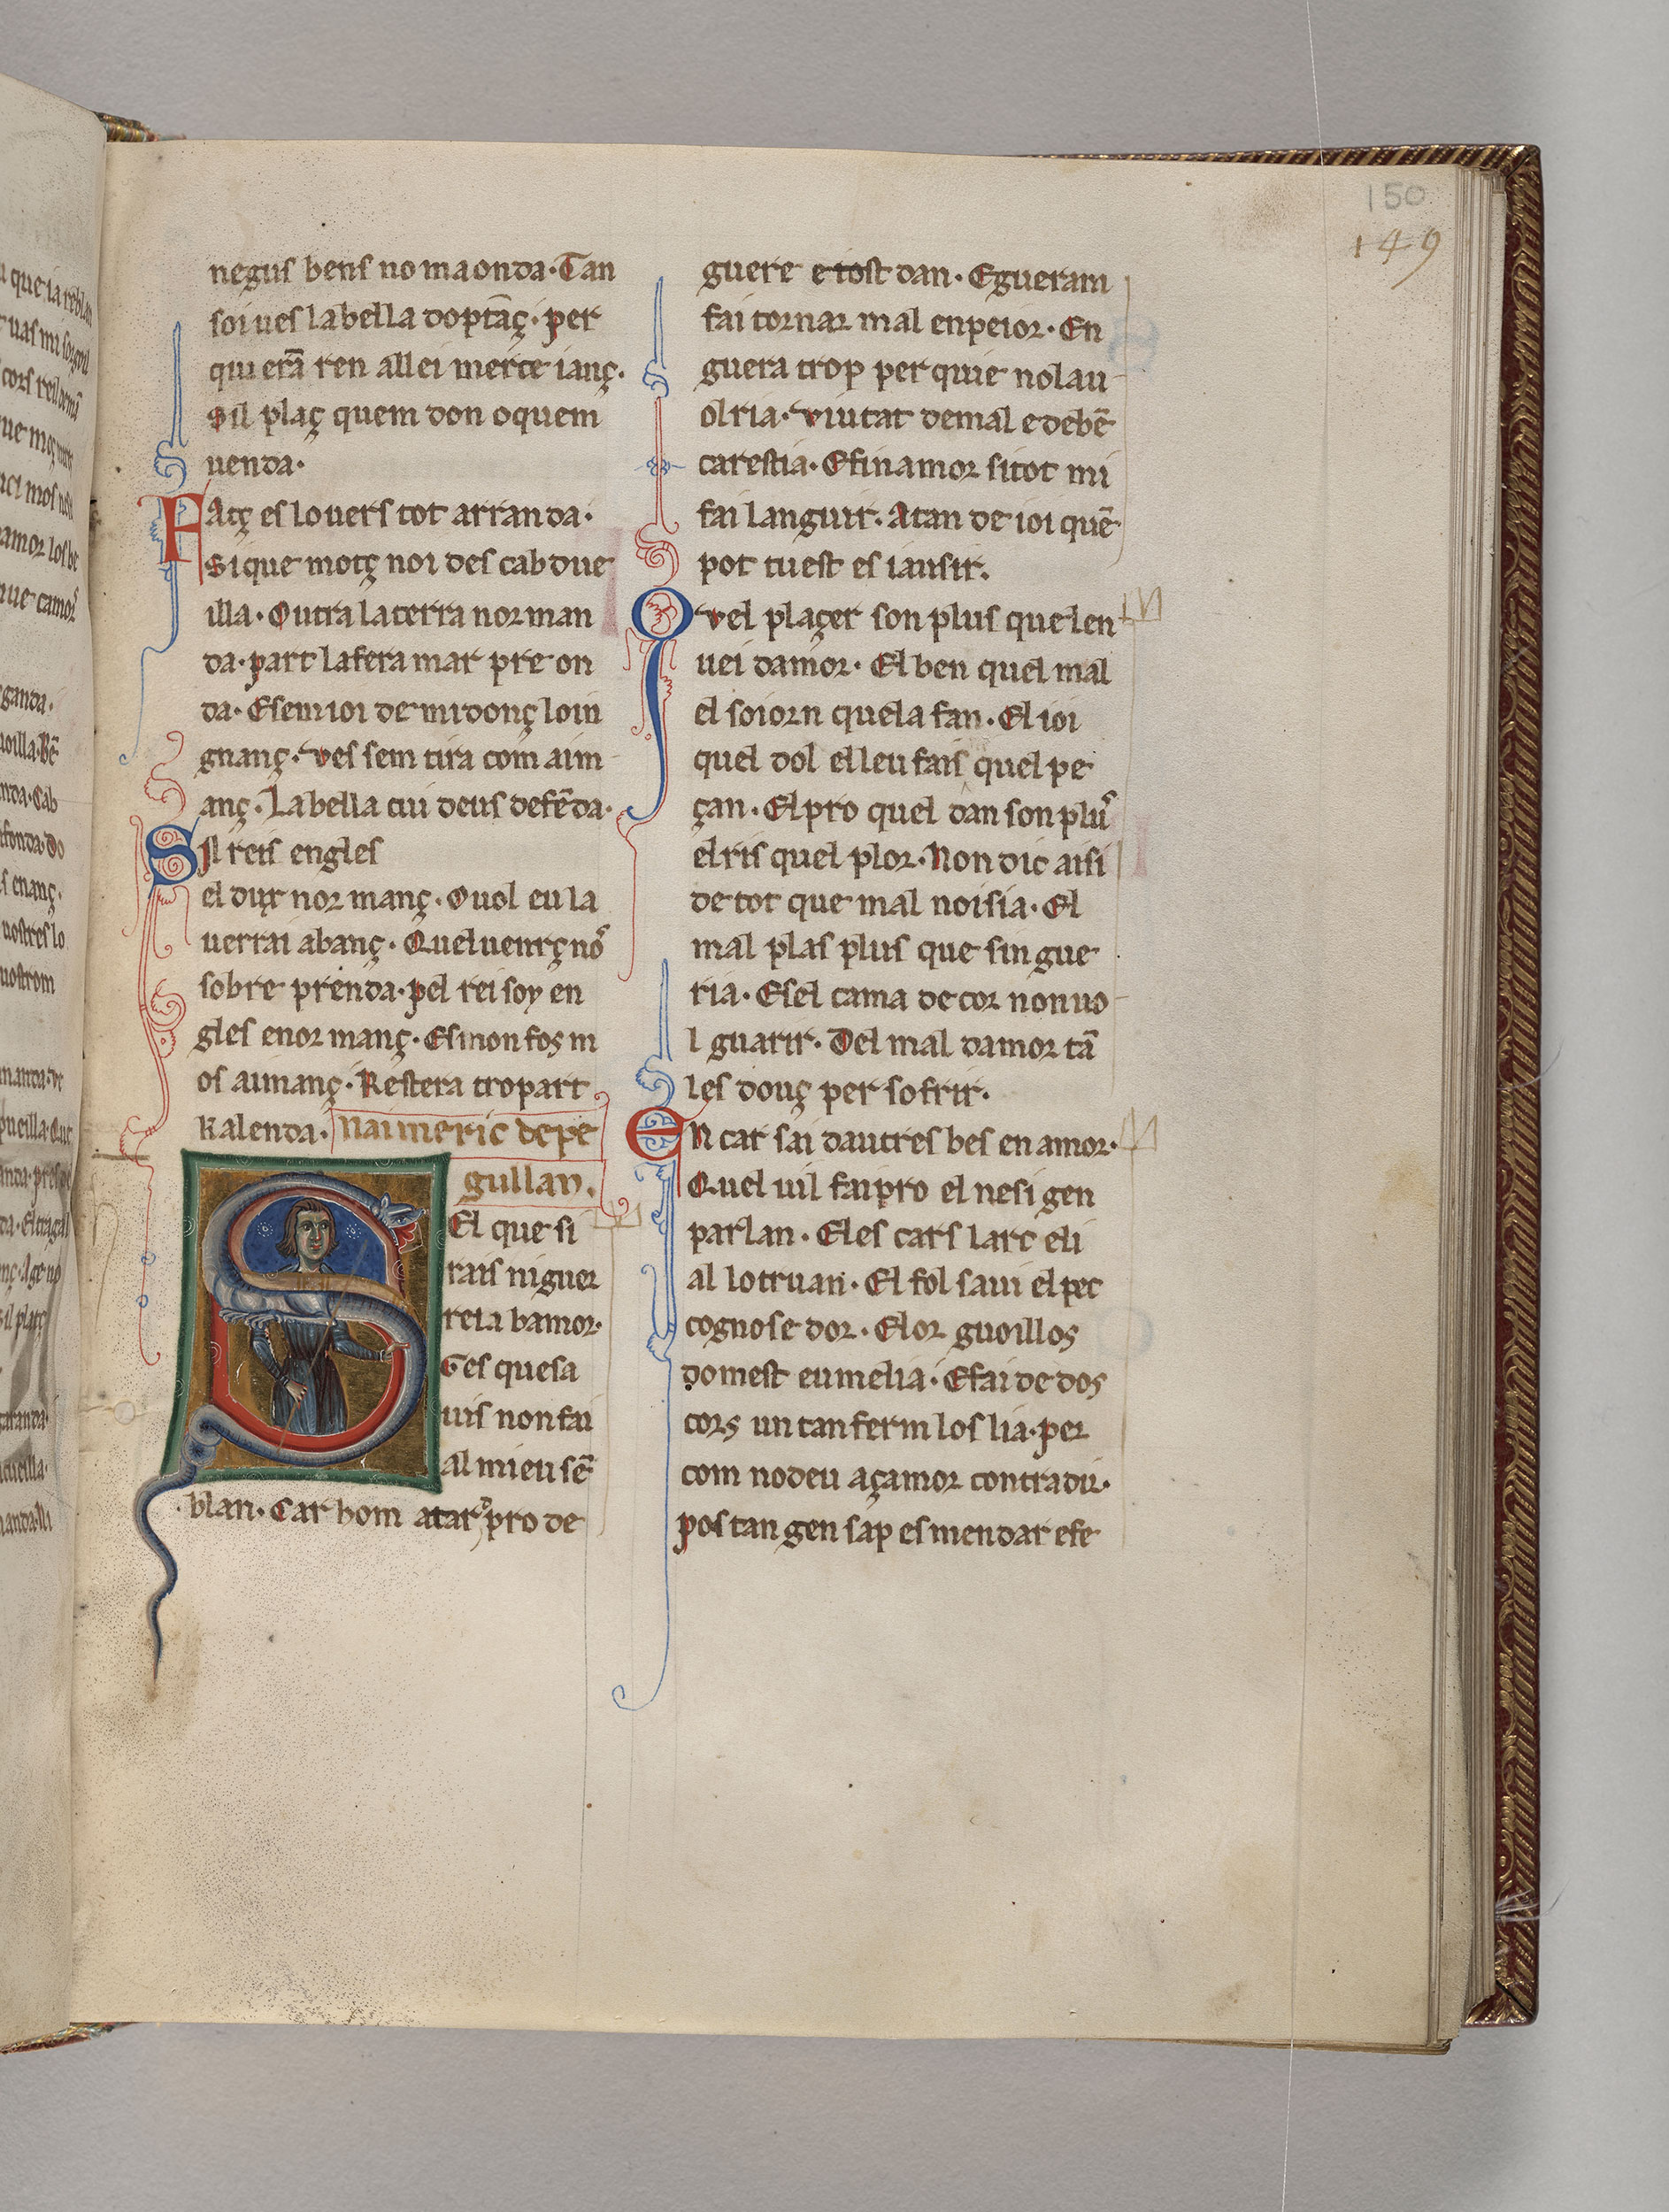 150
149
negus bens no maonda· Tan
soi ves la bella doptāç· per
qui erā ren allei merce ianç·
Sil plaç quem don o quem
uenda·
Fatç es lo uers tot arranda·
Si que motç noi des cabdue
illa· Outra la terra norman
da· part la fera mar preon
da· E sem ioi de midonç loin
gnanç· ves sem tira com aim
anç· La bella cui deus defēda·
Sil reis engles
el dux normanç· O uol eu la
uerrai abanç· Quel uenrç nos
sobre prenda· pel rei soy en
gles e normanç· E si non fos m
os aimanç· Restera tro part
kalenda· Naimeric de pe
gullan·
Sel que si
rais ni guer
reia bamor·
Ges que sa
uis non fai
al mieu sē
blan· Car hom atar pro de
guere e tost dan· E gueram
fai tornar mal en peior· En
guera trop per quie nolau
olria· viutat de mal e de bē
carestia· E finamor si tot mi
fai languir· Atan de ioi quē
pot tuest esiausir·
Qvel plaçer son plus que len
uei damor· El ben quel mal
el soiorn que la fan· El ioi
quel dol el leu fais quel pe
çan· El pro quel dan son plus
el ris quel plor· Non dic aisi
de tot que mal noi sia· El
mal plas plus que sin gue
ria· E sel cama de cor non uo
l guarir· Del mal damor tā
les douç per sofrir·
Encar sai dautres bes en amor·
Quel uil fai pro el nesi gen
parlan· El escars larc eli
al lo truan· El fol saui el pec
cognosedor· El orguoillos
domest eumelia· E fai de dos
cors un tan ferm los lia· per
com no deu açamor contradir·
pos tan gen sap esmendar e fe